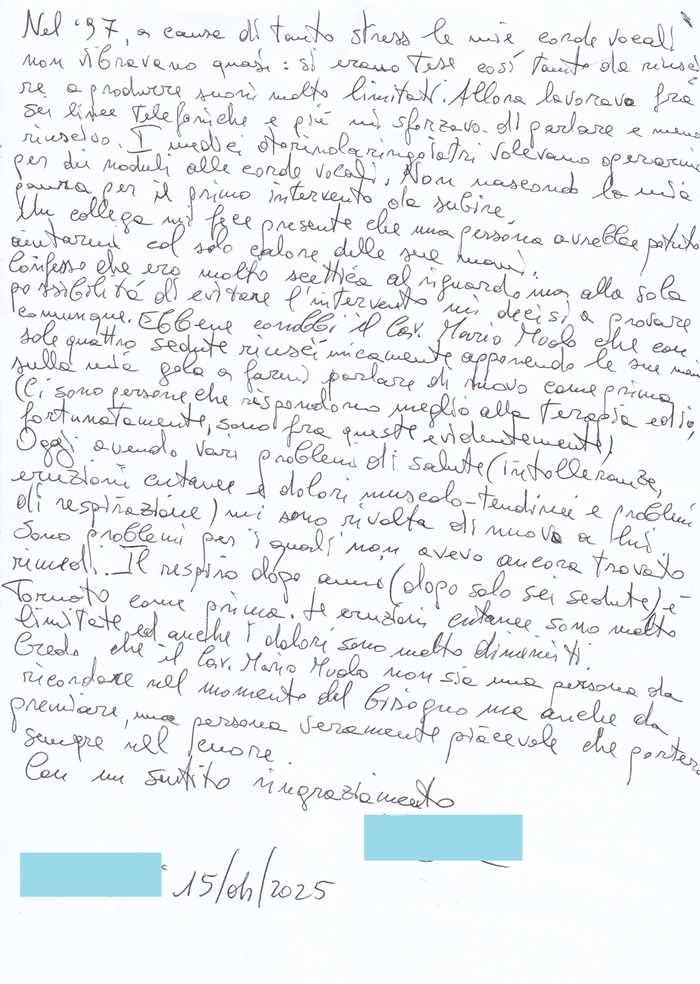 Nel '97, a causa di tanto stress le mie corde vocali
non vibravano quasi: si erano tese così tanto da riusci
re a produrre suoni molto limitati. Allora lavoravo fra
sei linee telefoniche e più mi sforzavo di parlare e meno
riuscivo. I medici otorinolaringoiatri volevano operarmi
per dei noduli alle corde vocali. Non nascondo la mia
paura per il primo intervento da subire.
Un collega mi fece presente che una persona avrebbe potuto
aiutarmi col solo calore delle sue mani.
Confesso che ero molto scettica al riguardo ma alla sola
possibilità di evitare l'intervento mi decisi a provare
comunque. Ebbene conobbi il Cav. Mario Muolo che con
sole quattro sedute riuscì unicamente apponendo le sue mani
sulla mia gola a farmi parlare di nuovo come prima
(Ci sono persone che rispondono meglio alla terapia ed io,
fortunatamente, sono fra queste evidentemente)
Oggi avendo vari problemi di salute (intolleranze,
eruzioni cutanee e dolori muscolo-tendinei e problemi
di respirazione) mi sono rivolta di nuovo a lui
Sono problemi per i quali non avevo ancora trovato
rimedi. Il respiro dopo anni (dopo solo sei sedute) è
tornato come prima. Le eruzioni cutanee sono molto
limitate ed anche i dolori sono molto diminuiti.
Credo che il Cav. Mario Muolo non sia una persona da
ricordare nel momento del bisogno ma anche da
premiare, una persona veramente piacevole che porterò
sempre nel cuore.
Con un sentito ringraziamento
15/04/2025